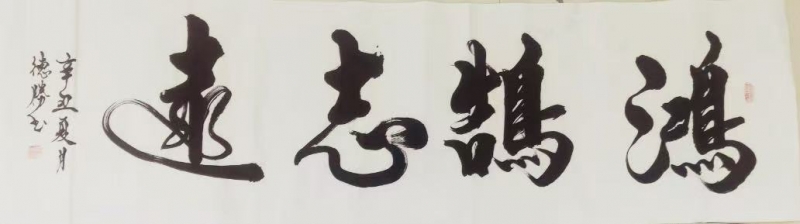 鴻鵠志遠
辛丑夏月
德勝书